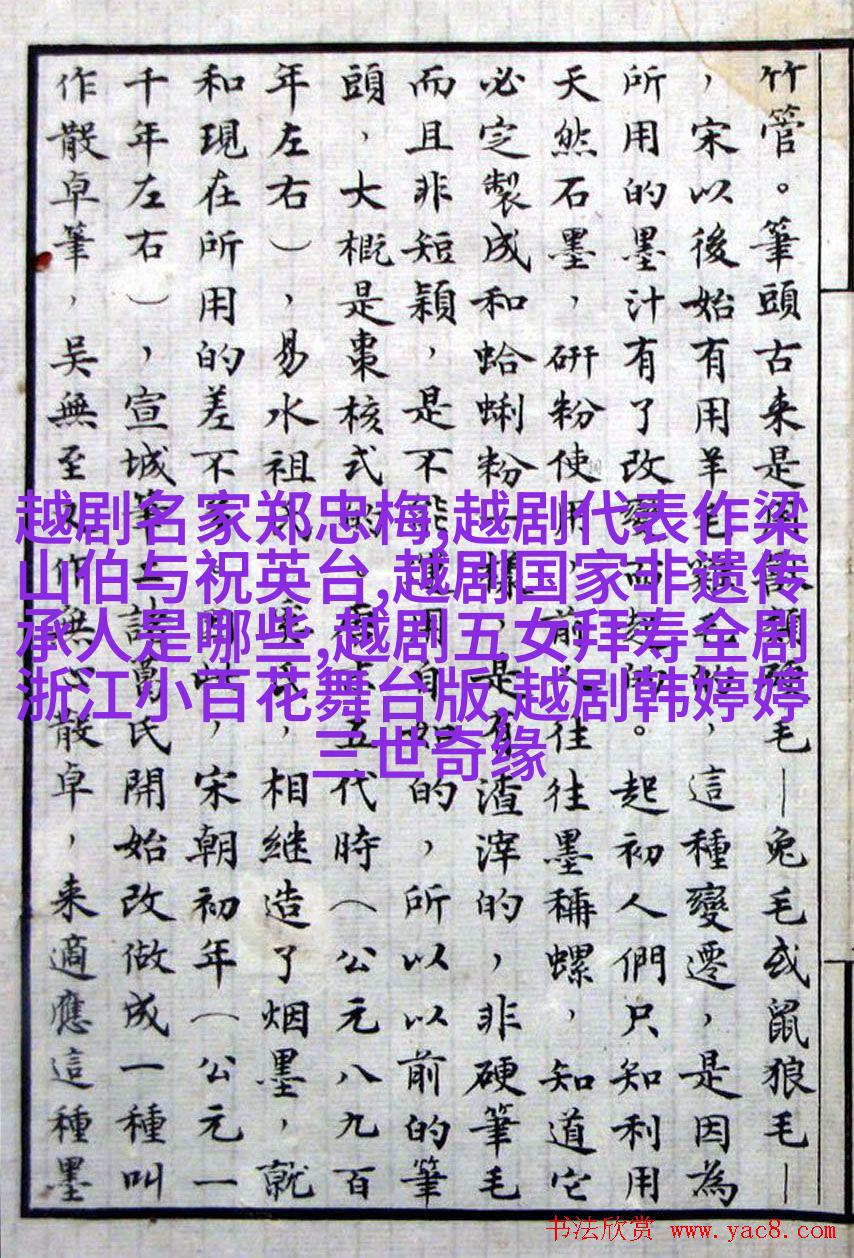 竹管。筆頭古来是毛—兔毛或鼠狼毛—
，宋以後始有用羊毛雞毛的，這種變遷，是因為
所用的墨汁有了改變而起的。起初人們只知利用
天然石墨，研粉使用，前人往往墨稱螺，知道它
必定製成和蛤蜊粉一樣，是有渣滓的，非硬筆毛
而且非短穎，是不能使用自如的，所以以前的筆
頭，大概是棗核式的。五代時（公元八九百
年左右），易水祖氏，相継造了烟墨，就
和現在所用的差不多。因此，宋朝初年（公元一
千年左右），宣城筆工諸葛氏開始改做成一種叫
作散卓筆，吳無至又作無心散卓，来適應這種墨
越剧名家郑忠梅,越剧代表作梁
山伯与祝英台,越剧国家非遗传
承人是哪些,越剧五女拜寿全剧
浙江小百花舞台版,越剧韩婷婷
三世奇缘
书法欣赏 www.yac8.com